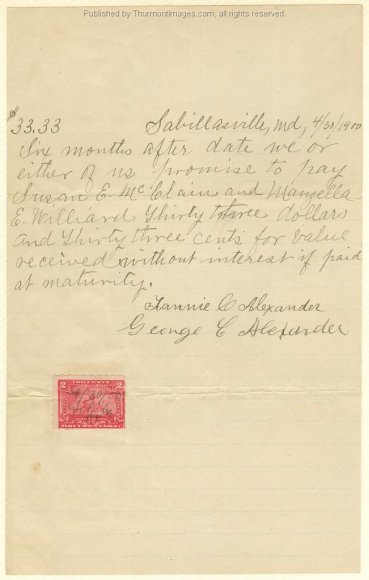 Published by ThurmontImages.com, all rights reserved.
$33.33 Sabillasville, Md, 4/30/1900
Six months after date we or
either of us promise to pay
Susan E. McClain and Manzella
E. Williard Thirty three dollars
and Thirty three cents for value
received without interest if paid
at maturity.
Fannie C Alexander
George C Alexander
TWO CENTS
2 2
DOCUMENTARY